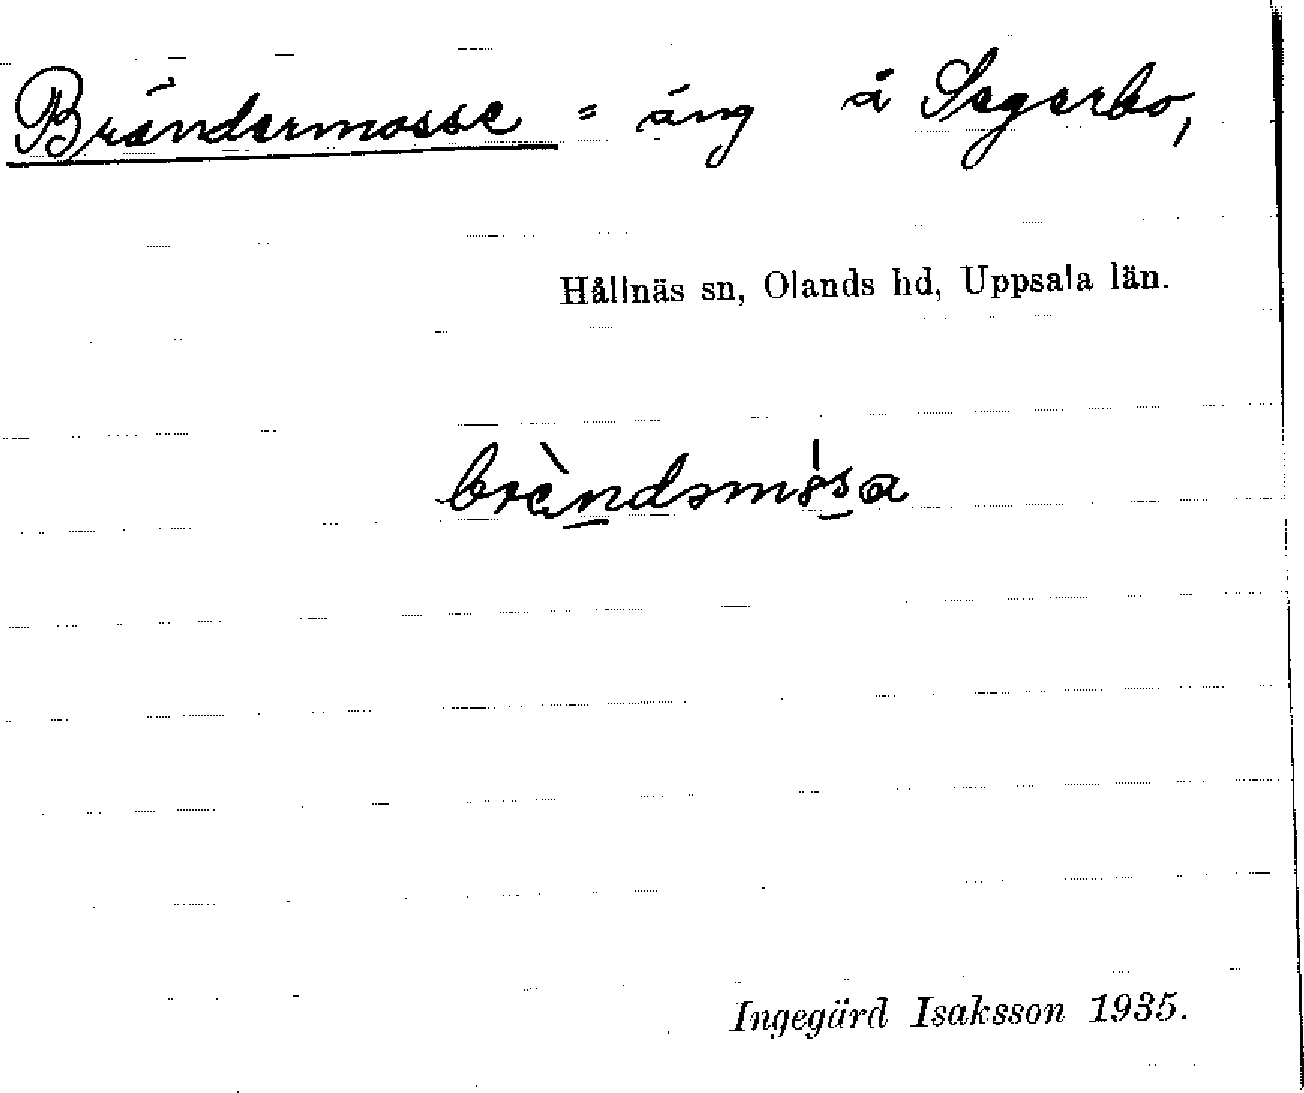 Brändermosse = äng å Segerbo,
Hållnäs sn, Olands hd, Uppsala län.
brèndəmósa
Ingegärd Isaksson 1935.